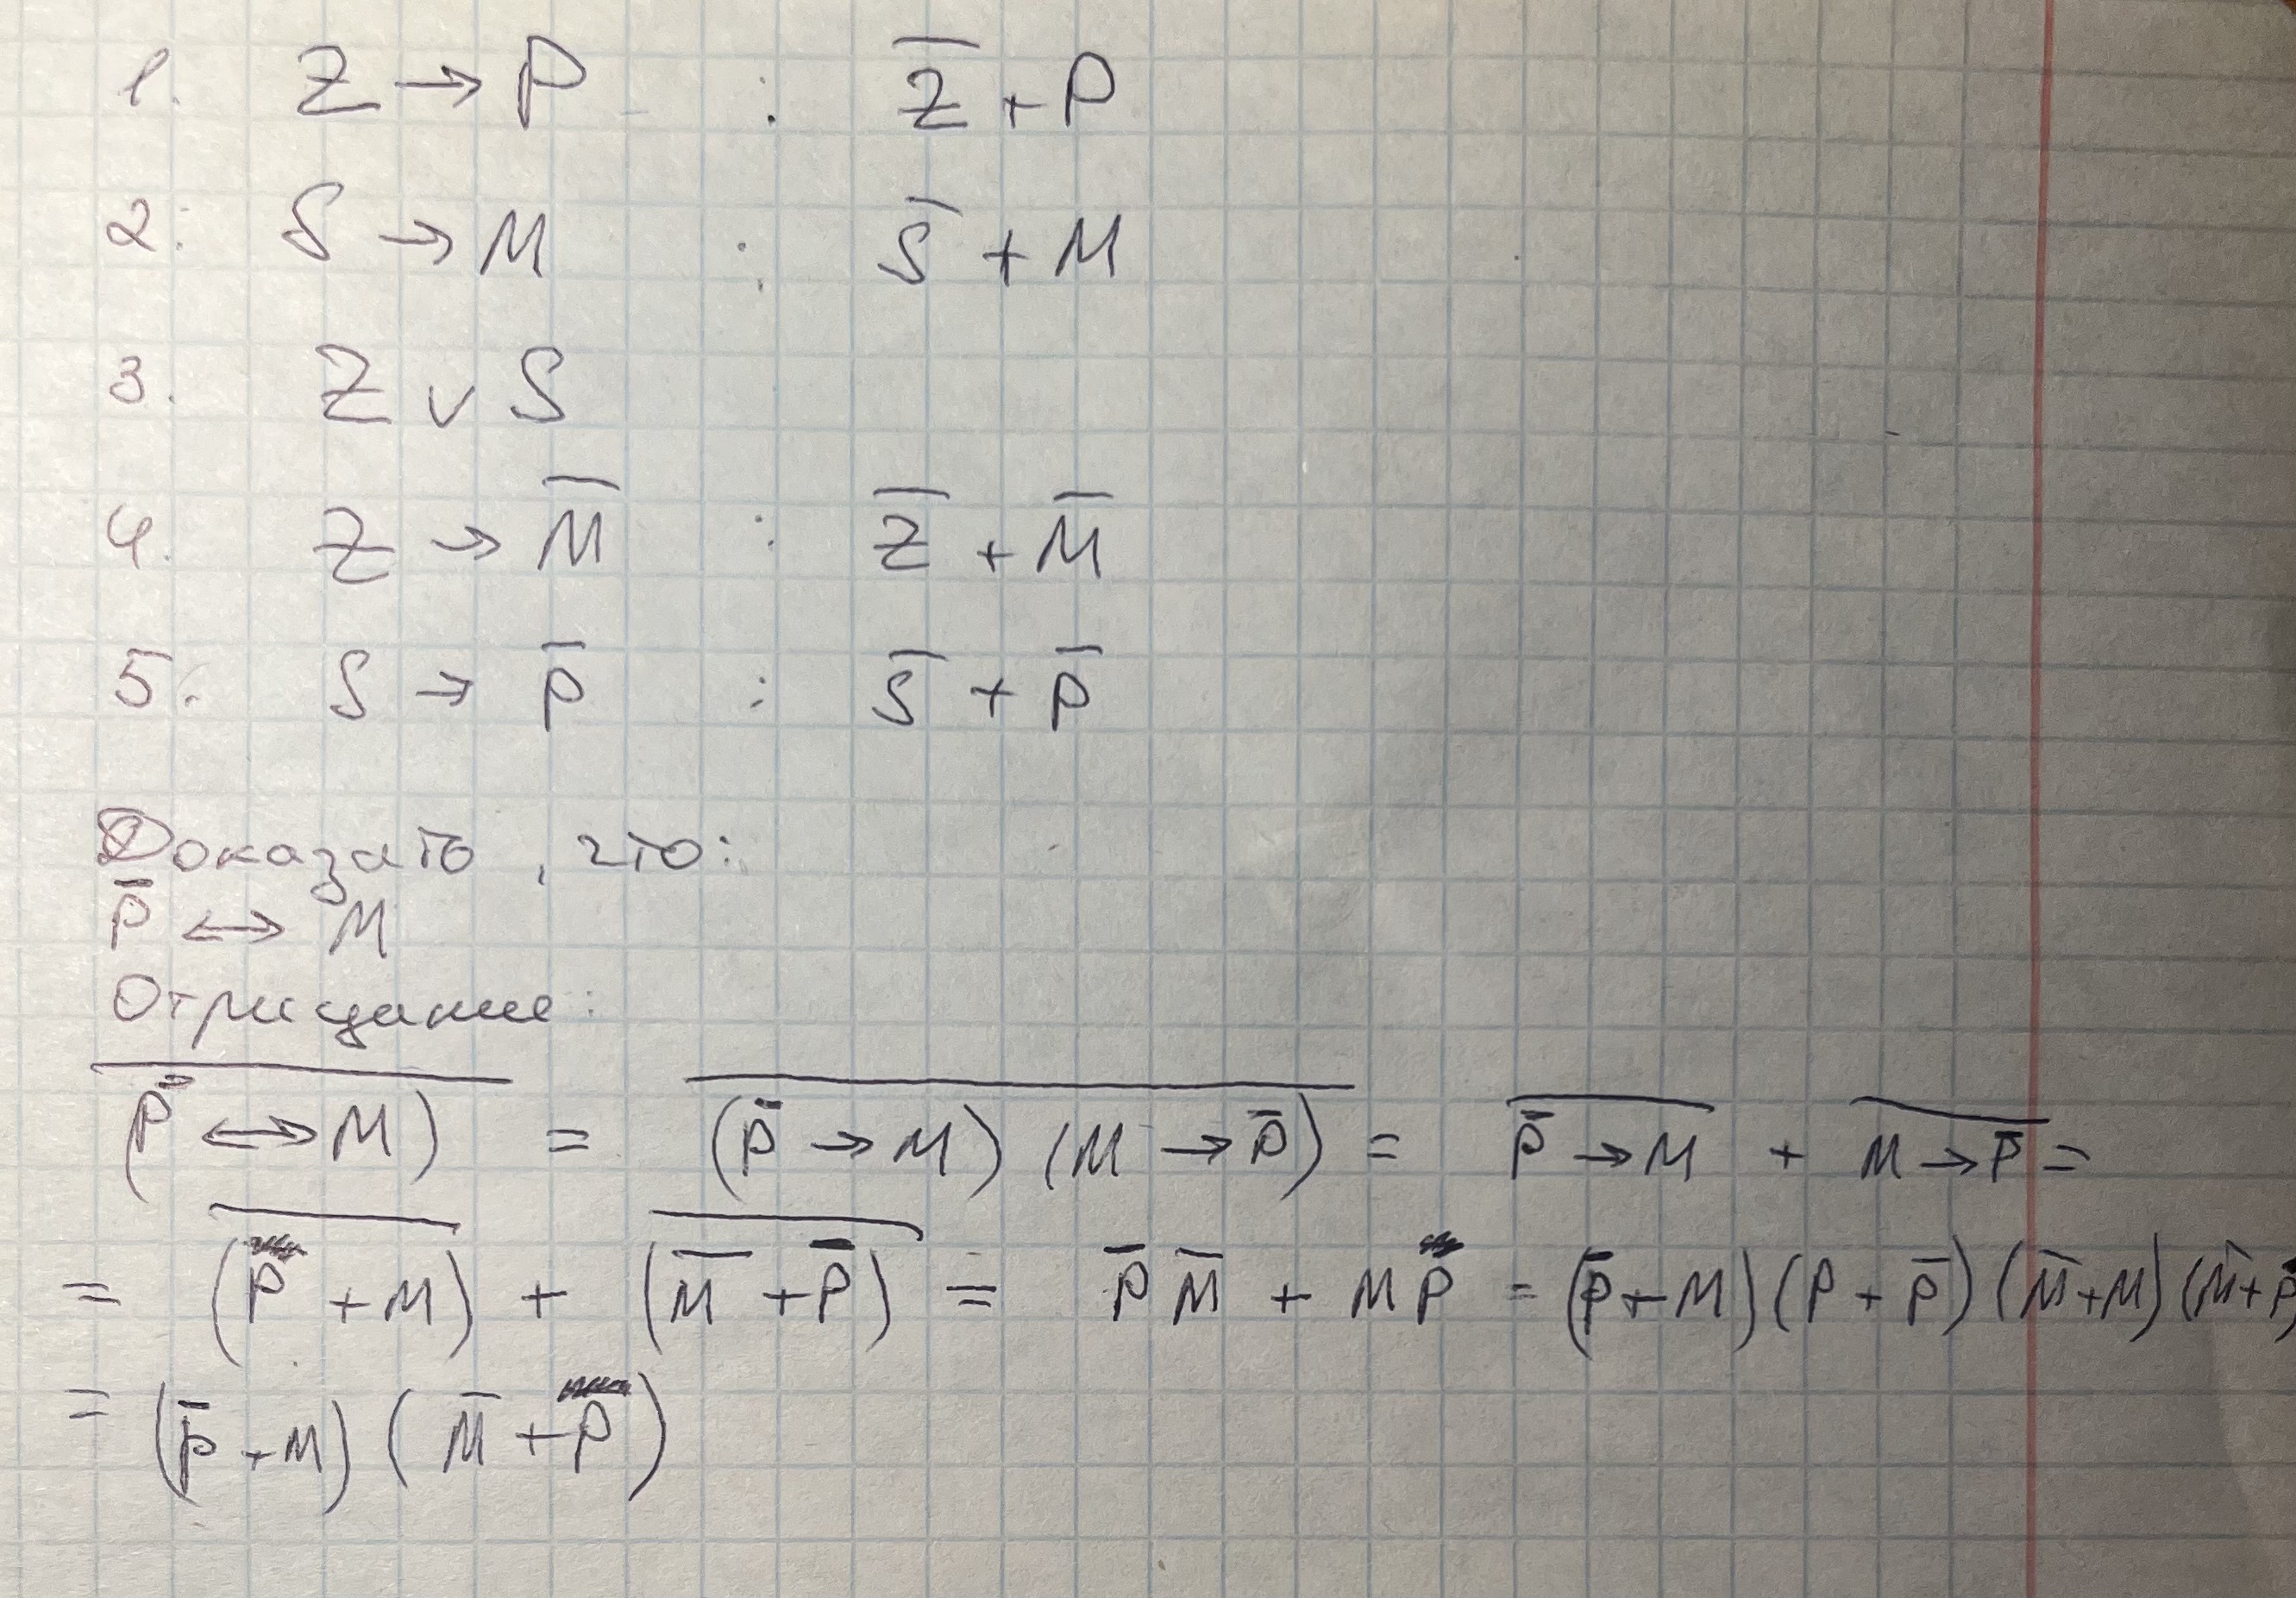 1. Z → P : Z̅ + P
2. S → M : S̅ + M
3. Z ∨ S
4. Z → M̅ : Z̅ + M̅
5. S → P̅ : S̅ + P̅
Доказать, что:
P̅ ↔ M
Отрицание:
\overline{(P̅ ↔ M)} = \overline{(P̅ → M)(M → P̅)} = \overline{P̅ → M} + \overline{M → P̅} =
= \overline{(P + M)} + \overline{(M̅ + P̅)} = P̅ M̅ + M P = (P̅ + M)(P + P̅)(M̅ + M)(M̅ + P)
= (P̅ + M)(M̅ + P)